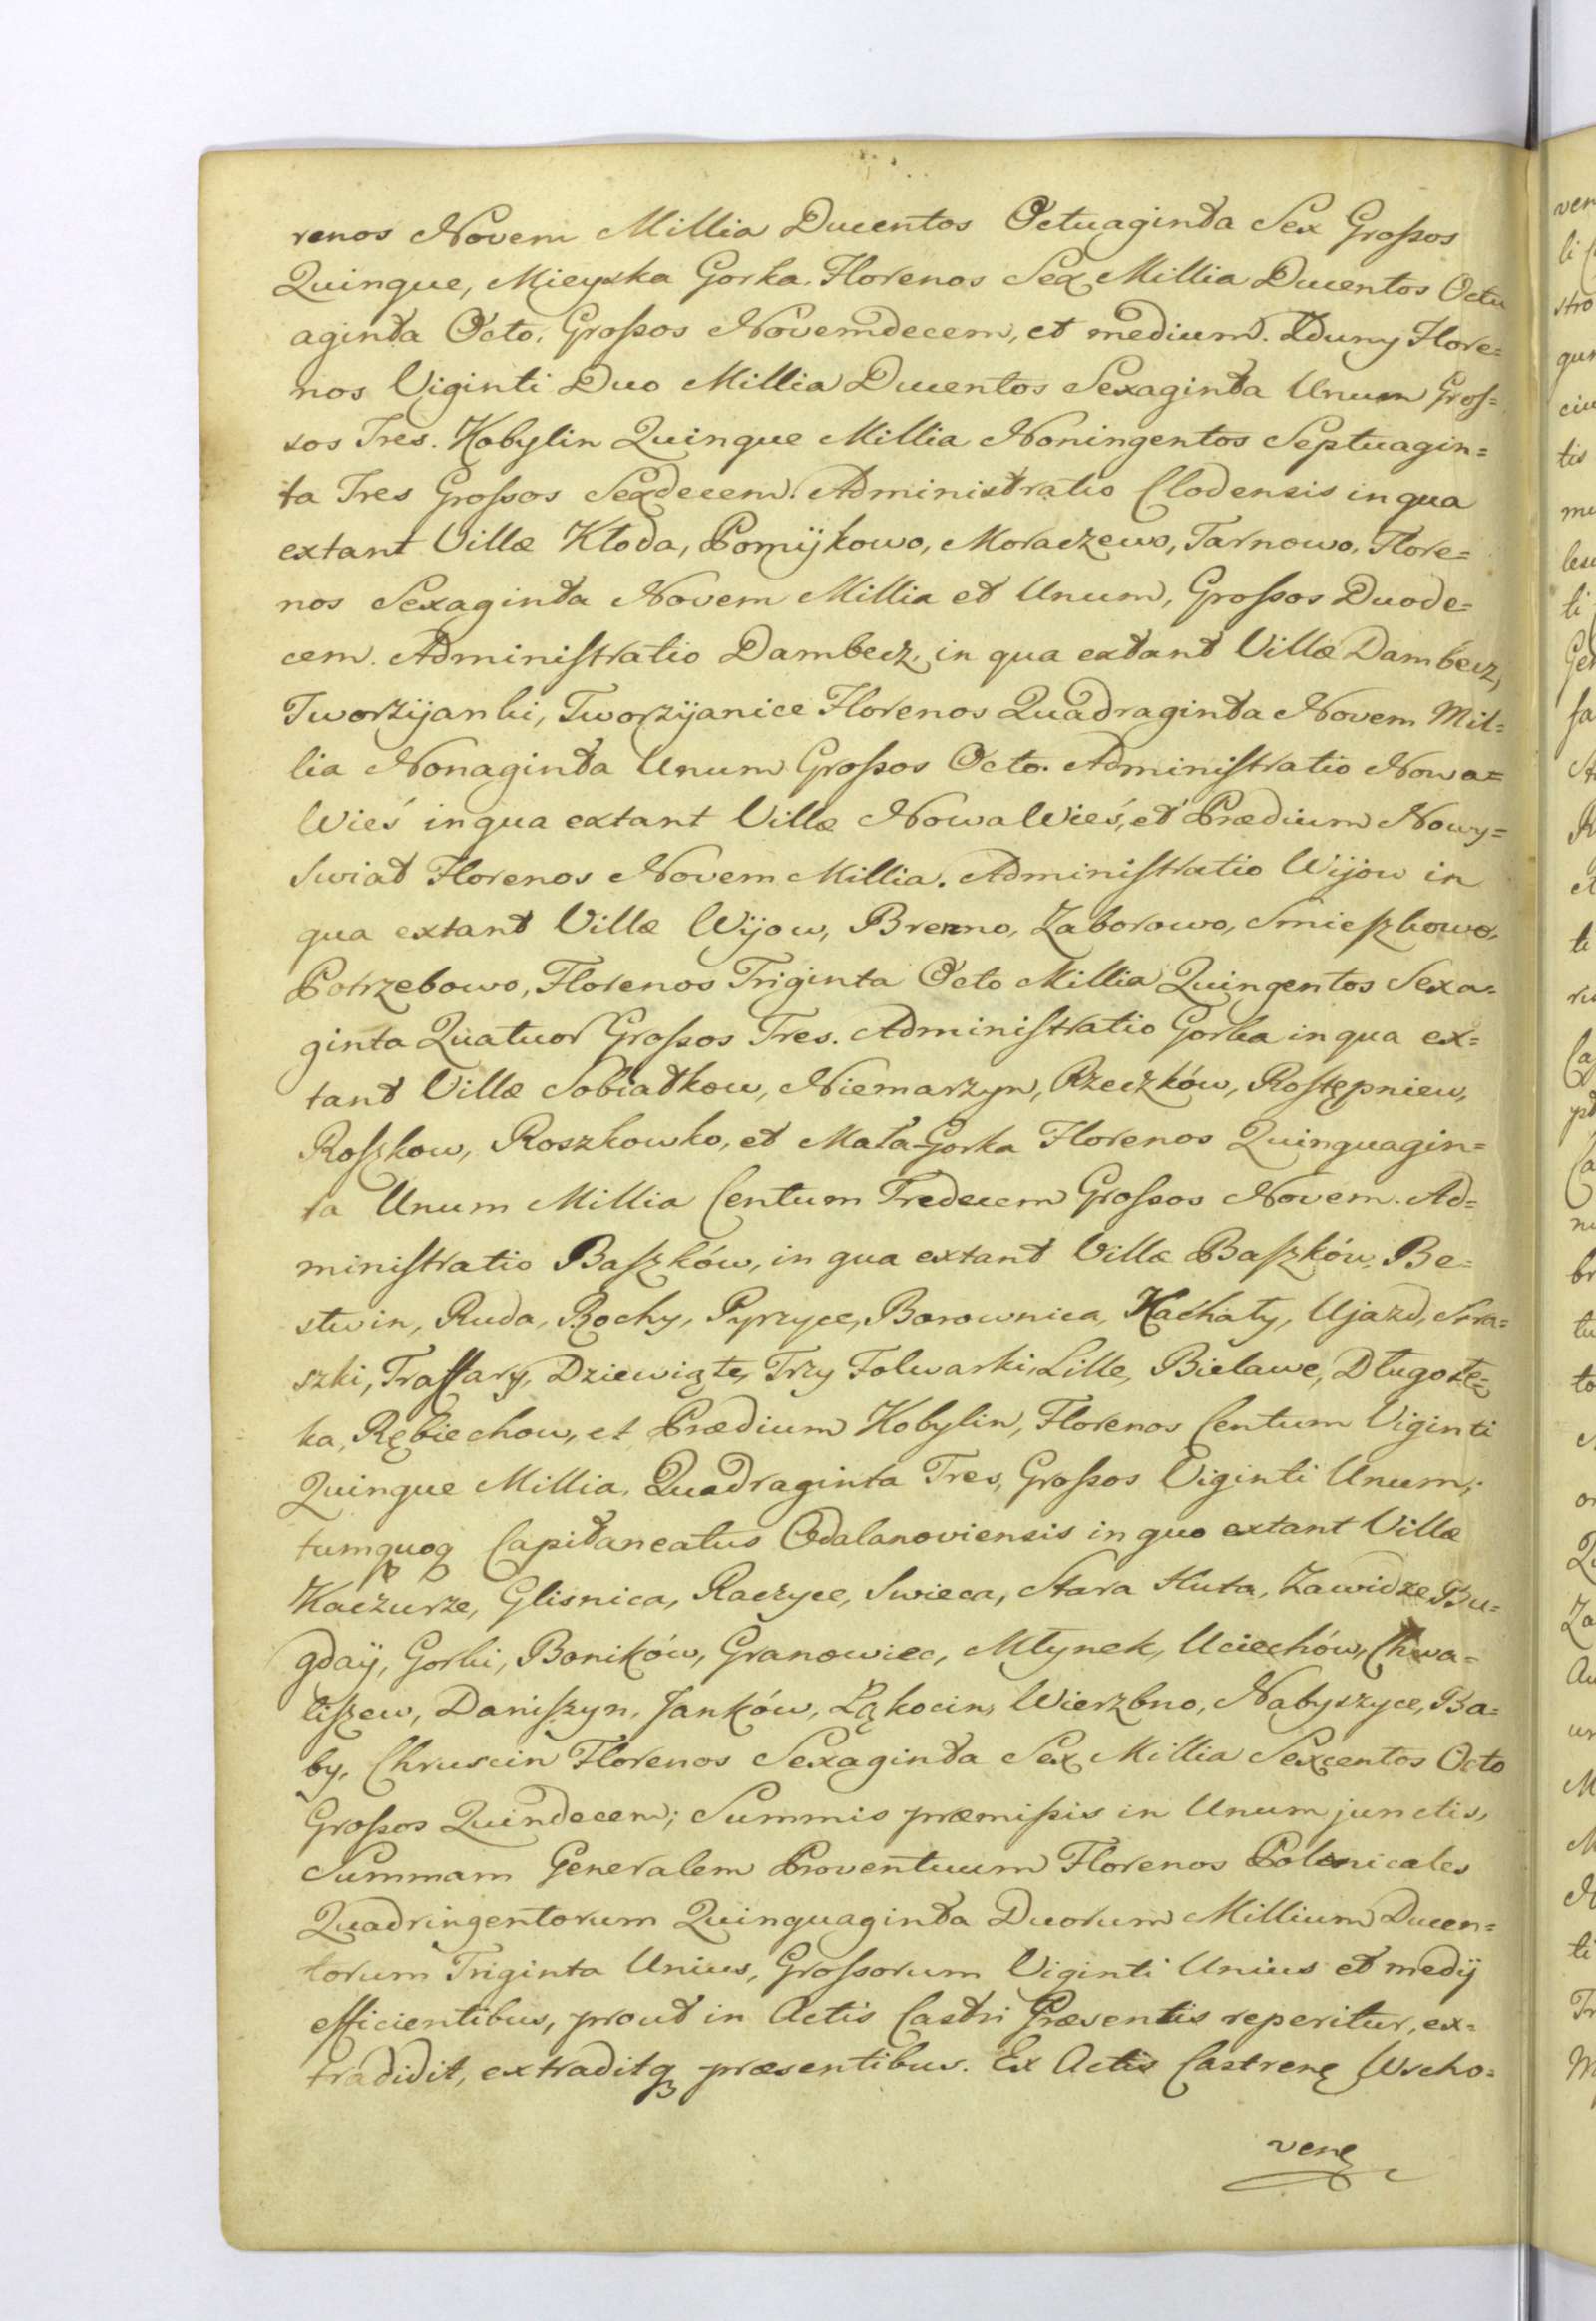 renos Novem Millia Ducentos Octuaginta Sex Grossos
Quinque, Mieyska Gorka. Florenos Sex Millia Ducentos Octu
aginta Octo, Grossos Novemdecem, et medium. Zduny Flore=
nos Viginti Duo Millia Ducentos Sexaginta Unum Gros=
sos Tres. Kobylin Quinque Millia Noningentos Septuagin=
ta Tres Grossos Sexdecem. Administratio Clodensis in qua
extant Villæ Kłoda, Pomÿkowo, Moraczewo, Tarnowo, Flore=
nos Sexaginta Novem Millia et Unum, Grossos Duode=
cem. Administratio Dambecz, in qua extant Villæ Dambecz,
Tworzÿanki, Tworzÿanice Florenos Quadraginta Novem Mil=
lia Nonaginta Unum Grossos Octo. Administratio Nowa=
Wieś in qua extant Villæ Nowa Wieś, et Prædium Nowy=
Swiat Florenos Novem Millia. Administratio Wijow in
qua extant Villæ Wijow, Brenno, Zaborowo, Smieszkowo,
Potrzebowo, Florenos Triginta Octo Millia Quingentos Sexa=
ginta Quatuor Grossos Tres. Administratio Gorka in qua ex=
tant Villæ Sobiatkow, Niemarzyn, Rzeczków, Rostępniew,
Roszkow, Roszkowko, et Mała-Gorka Florenos Quinquagin=
ta Unum Millia Centum Tredecem Grossos Novem. Ad=
ministratio Baszków, in qua extant Villæ Baszków, Be=
stwin, Ruda, Rochy, Pyrzyce, Borownica, Kachaty, Ujazd, Stra=
szki, Trassary, Dziewiąte, Trzy Folwarki, Lille, Bielawe, Długołę=
ka, Rębiechow, et Prædium Kobylin, Florenos Centum Viginti
Quinque Millia, Quadraginta Tres, Grossos Viginti Unum;
tumquoq Capitaneatus Odalanoviensis in quo extant Villæ
Kaczurze, Glisnica, Raczyce, Swieca, Stara Huta, Zawidze, Bu=
gdaÿ, Gorki, Boników, Granowiec, Młynek, Uciechów, Chwa=
liszew, Daniszyn, Janków, Łąkocin, Wierzbno, Nabyszyce, Ba=
by, Chruscin Florenos Sexaginta Sex Millia Sexcentos Octo
Grossos Quindecem; Summis præmissis in Unum junctis,
Summam Generalem Proventuum Florenos Polonicales
Quadringentorum Quinquaginta Duorum Millium Ducen=
torum Triginta Unius, Grossorum Viginti Unius et medÿ
efficientibus, prout in Actis Castri Præsentis reperitur, ex=
tradidit, extraditq præsentibus. Ex Actis Castrenę Wscho=
venę